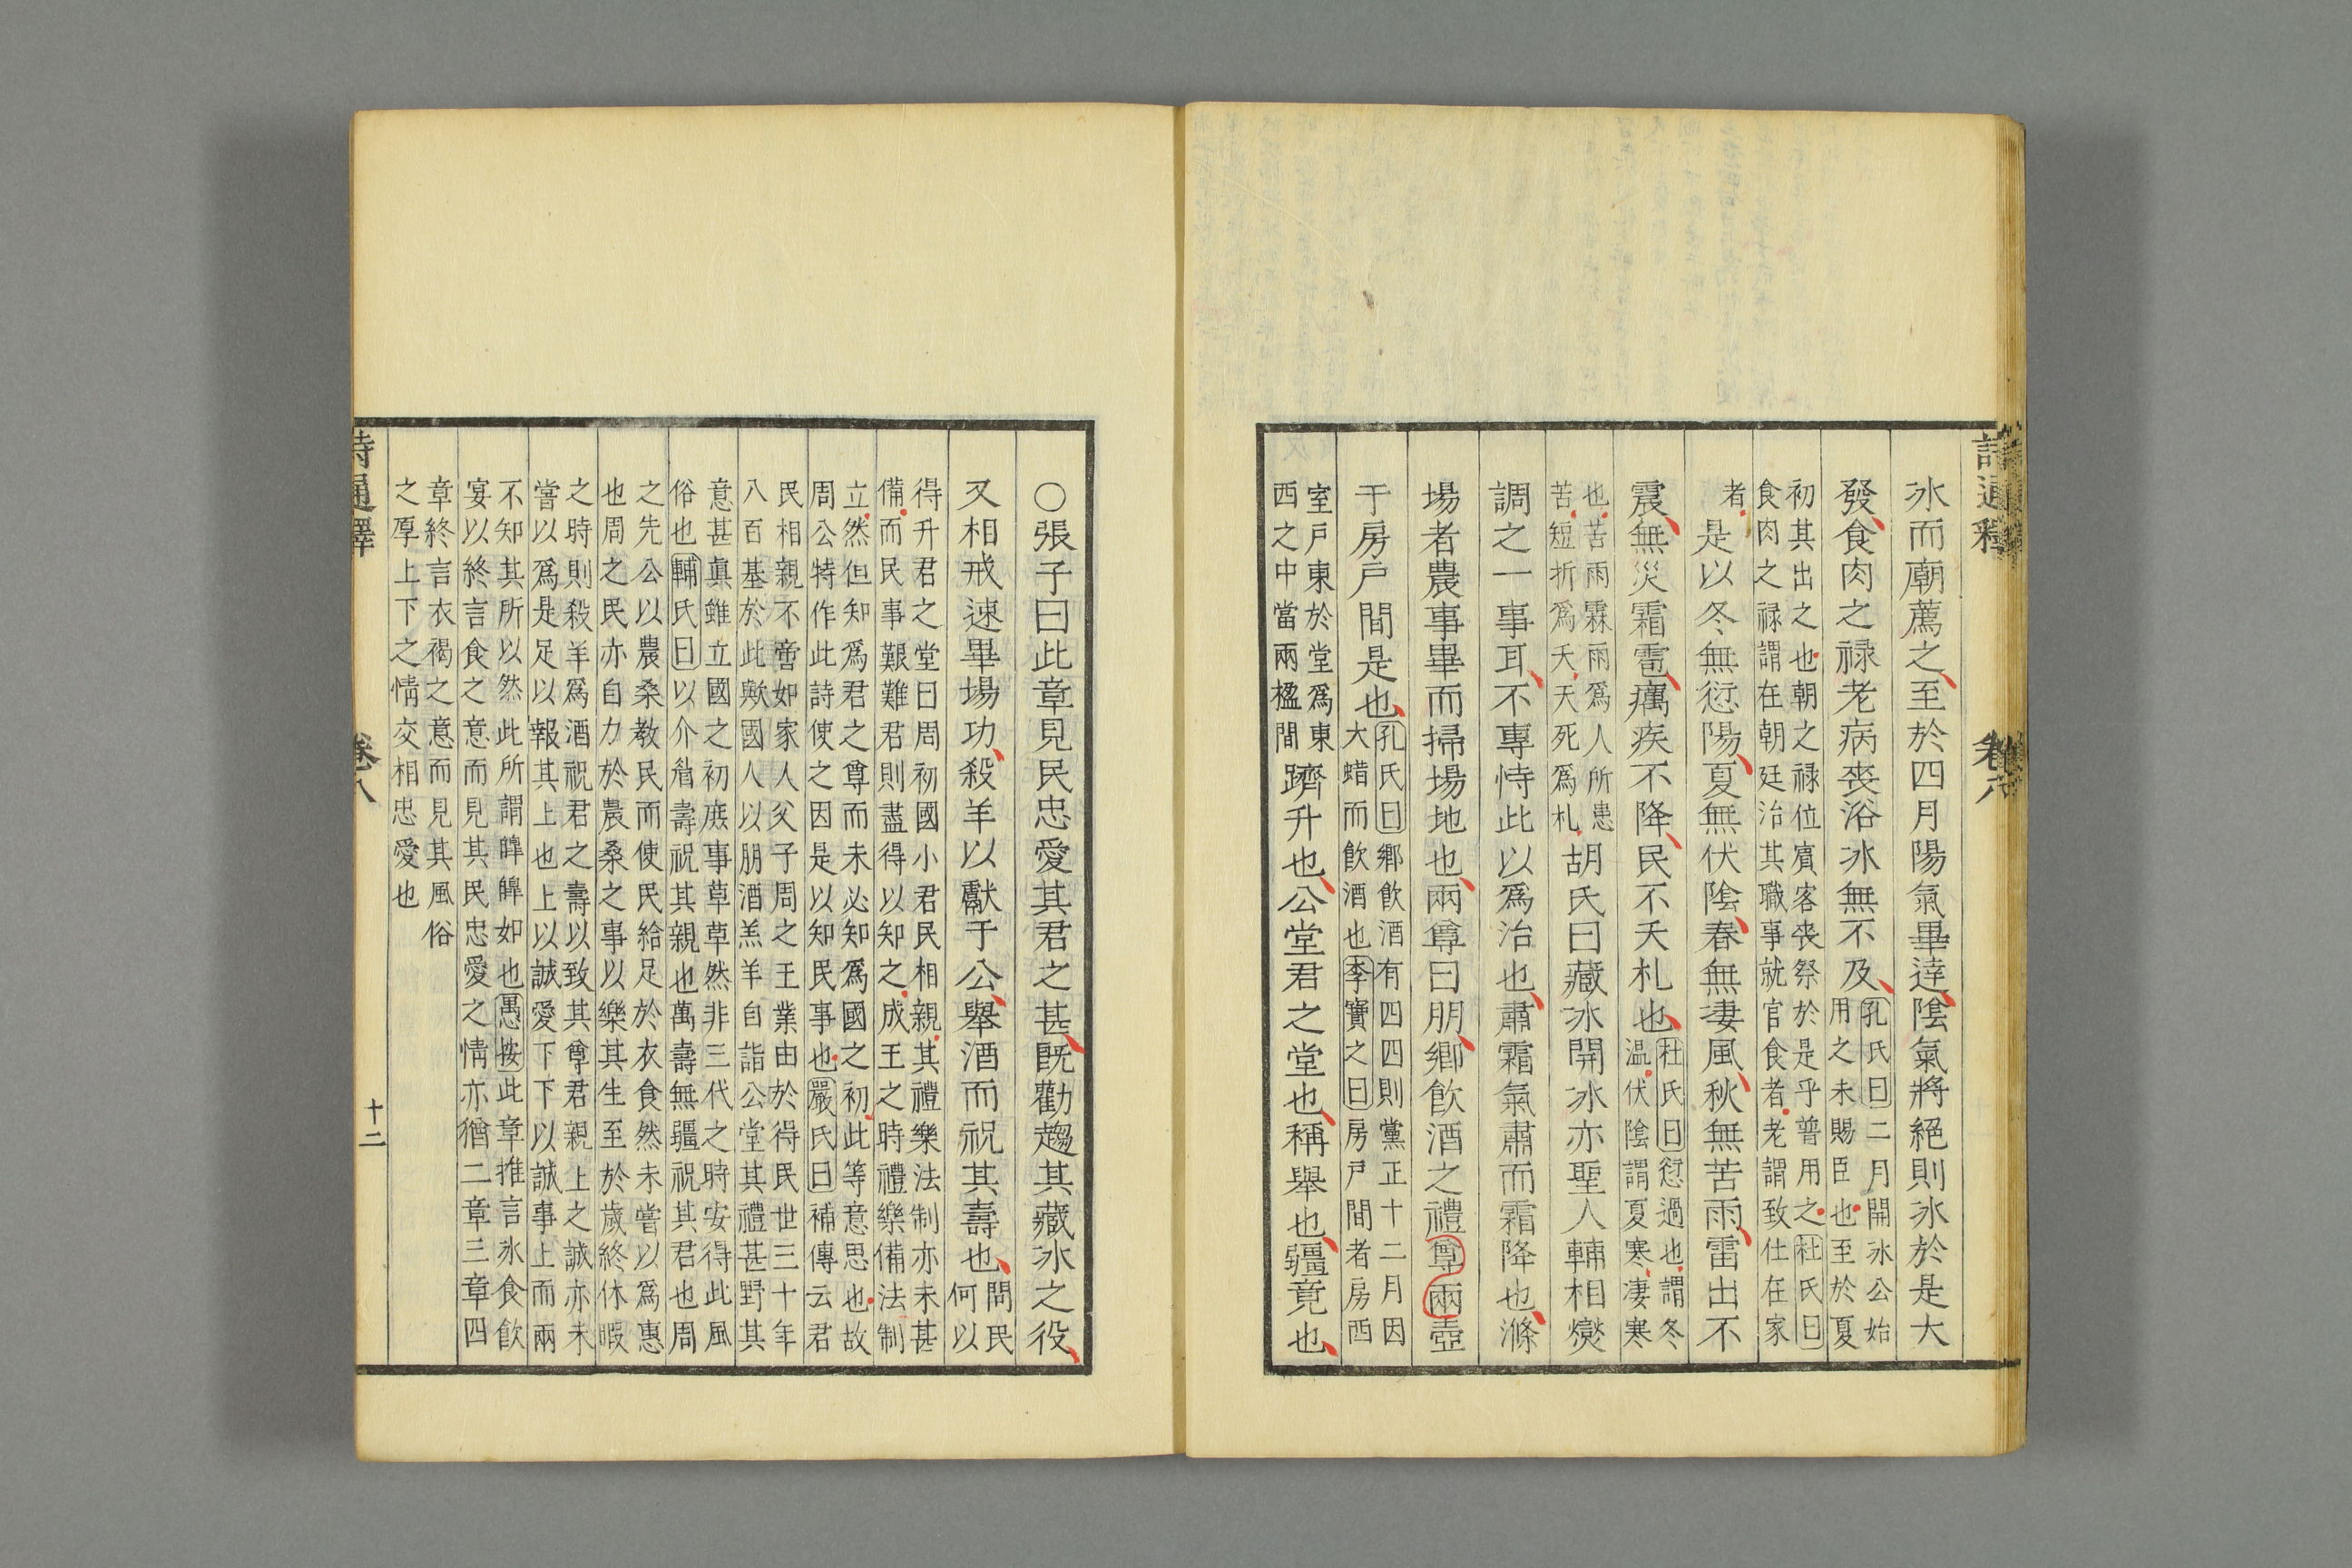 詩通釋 卷八
冰而廟薦之至於四月陽氣畢達陰氣將絕則冰於是大
發食肉之祿老病喪浴冰無不及
孔氏曰二月開冰公始
用之未賜臣也至於夏
初其出之也朝之祿位賓客喪祭於是乎普用之杜氏曰
食肉之祿謂在朝廷治其職事就官食者老謂致仕在家
者
是以冬無愆陽夏無伏陰春無凄風秋無苦雨雷出不
震無災霜雹癘疾不降民不夭札也
杜氏曰愆過也謂冬
温伏陰謂夏寒凄寒
也苦雨霖雨爲人所患
苦短折爲夭夭死爲札
胡氏曰藏冰開冰亦聖人輔相燮
調之一事耳不專恃此以爲治也肅霜氣肅而霜降也滌
場者農事畢而掃場地也兩尊曰朋鄉飲酒之禮尊兩壺
于房戶間是也
孔氏曰鄉飲酒有四四則黨正十二月因
大蜡而飲酒也李寶之曰房戶間者房西
室戶東於堂爲東
西之中當兩楹間
躋升也公堂君之堂也稱舉也疆竟也
○張子曰此章見民忠愛其君之甚既勸趨其藏冰之役
又相戒速畢場功殺羊以獻于公舉酒而祝其壽也
問民
何以
得升君之堂曰周初國小君民相親其禮樂法制亦未甚
備而民事艱難君則盡得以知之成王之時禮樂備法制
立然但知爲君之尊而未必知爲國之初此等意思也故
周公特作此詩使之因是以知民事也嚴氏曰補傳云君
民相親不啻如家人父子周之王業由於得民世三十年
八百基於此歟國人以朋酒羔羊自詣公堂其禮甚野其
意甚眞雖立國之初庶事草草然非三代之時安得此風
俗也輔氏曰以介眉壽祝其親也萬壽無疆祝其君也周
之先公以農桑教民而使民給足於衣食然未嘗以爲惠
也周之民亦自力於農桑之事以樂其生至於歲終休暇
之時則殺羊爲酒祝君之壽以致其尊君親上之誠亦未
嘗以爲是足以報其上也上以誠愛下下以誠事上而兩
不知其所以然此所謂皥皥如也愚按此章推言氷食飲
宴以終言食之意而見其民忠愛之情亦猶二章三章四
章終言衣褐之意而見其風俗
之厚上下之情交相忠愛也
詩通釋 卷八 十二